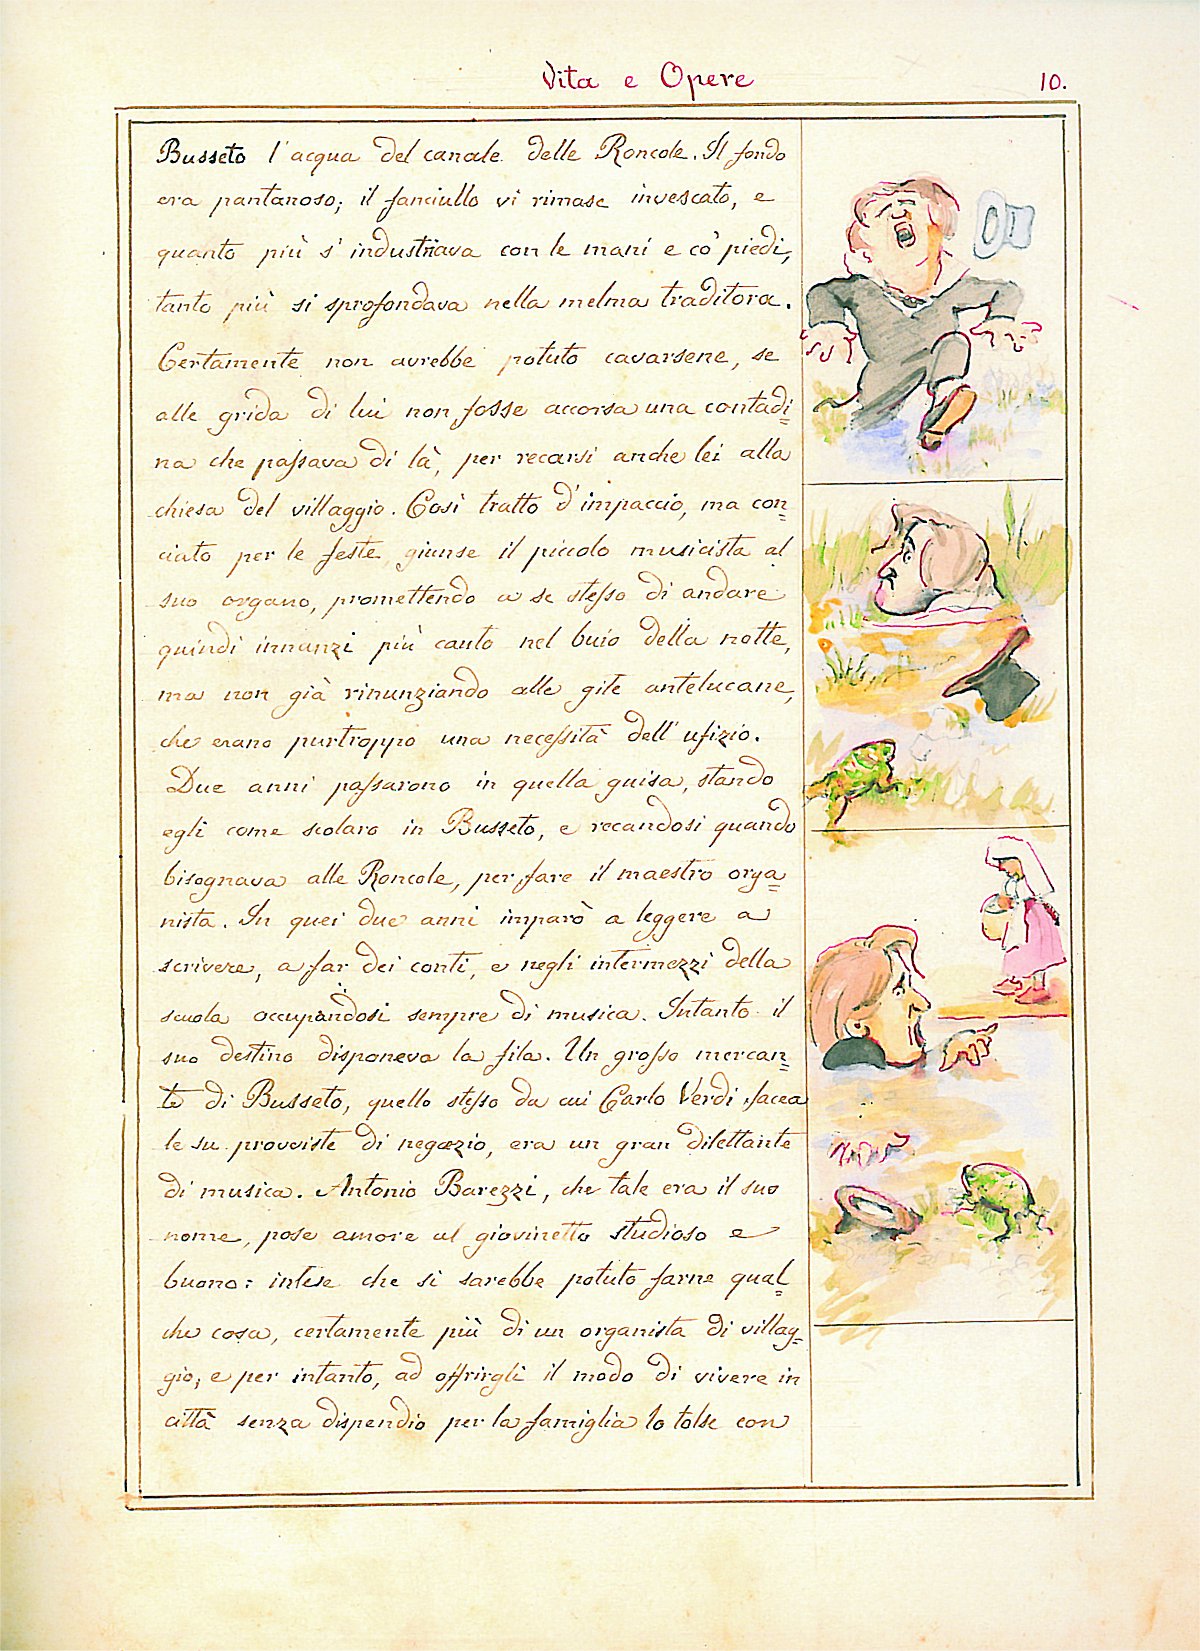 Vita e Opere
10.
Busseto l'acqua del canale delle Roncole. Il fondo
era pantanoso; il fanciullo vi rimase invescato, e
quanto più s'industriava con le mani e co' piedi,
tanto più si sprofondava nella melma traditora.
Certamente non avrebbe potuto cavarsene, se
alle grida di lui non fosse accorsa una contadi=
na che passava di là, per recarsi anche lei alla
chiesa del villaggio. Così tratto d'impaccio, ma con=
ciato per le feste giunse il piccolo musicista al
suo organo, promettendo a se stesso di andare
quindi innanzi più cauto nel buio della notte,
ma non già rinunziando alle gite antelucane,
che erano purtroppo una necessità dell'ufizio.
Due anni passarono in quella guisa, stando
egli come scolaro in Busseto, e recandosi quando
bisognava alle Roncole, per fare il maestro orga=
nista. In quei due anni imparò a leggere a
scrivere, a far dei conti, e negli intermezzi della
scuola occupandosi sempre di musica. Intanto il
suo destino disponeva la fila. Un grosso mercan=
te di Busseto, quello stesso da cui Carlo Verdi facea
le su provviste di negozio, era un gran dilettante
di musica. Antonio Barezzi, che tale era il suo
nome, pose amore al giovinetto studioso e
buono: intese che si sarebbe potuto farne qual=
che cosa, certamente più di un organista di villag=
gio; e per intanto, ad offrirgli il modo di vivere in
città senza dispendio per la famiglia lo tolse con